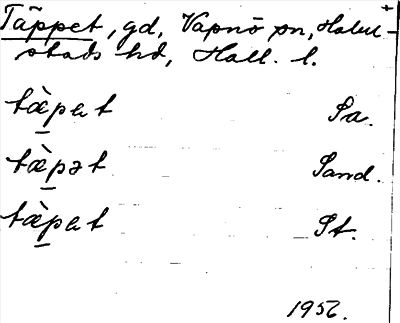 Täppet, gd, Vapnö sn, Halm-
stads hd, Hall. l.
tæ̀pat Sa.
tæ̀pət Sand.
tæ̀pat St.
1956.